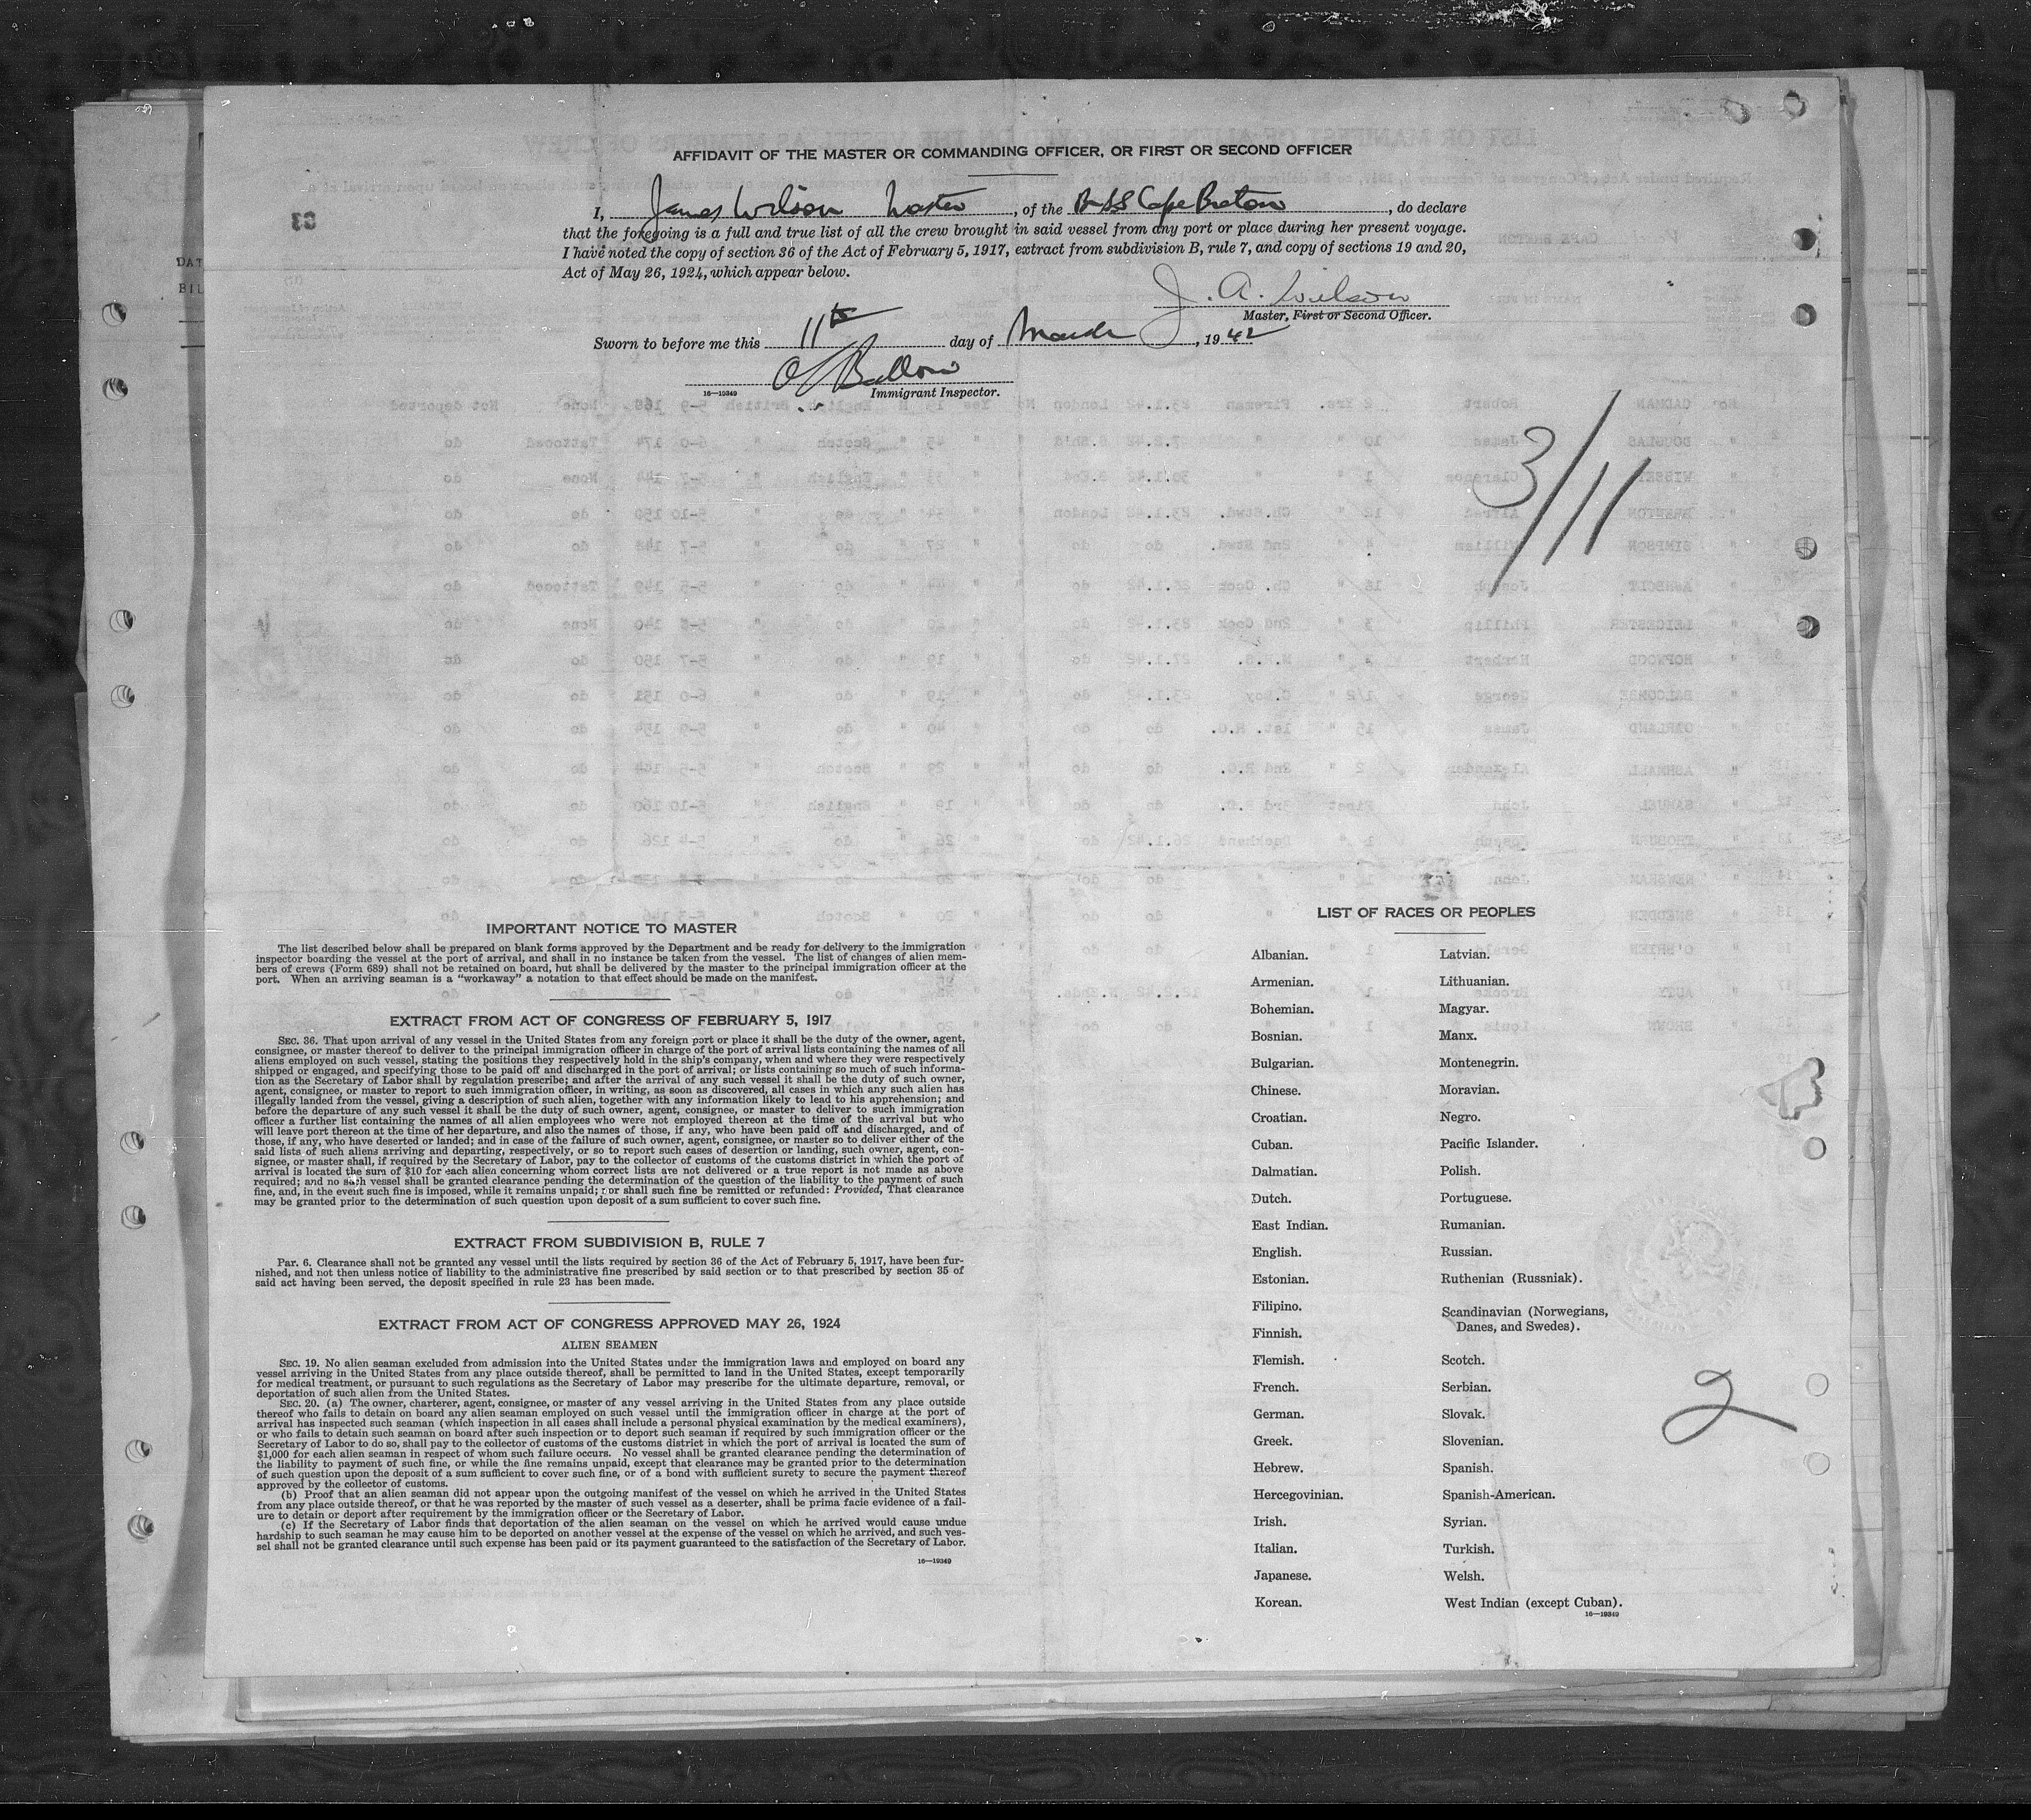 AFFIDAVIT OF THE MASTER OR COMMANDING OFFICER, OR FIRST OR SECOND OFFICER
I, James Wilson Master, of the Br SS Cape Breton, do declare
that the foregoing is a full and true list of all the crew brought in said vessel from any port or place during her present voyage.
I have noted the copy of section 36 of the Act of February 5, 1917, extract from subdivision B, rule 7, and copy of sections 19 and 20,
Act of May 26, 1924, which appear below.
J. A. Wilson
Master, First or Second Officer.
Sworn to before me this 11th day of March, 1942
16—19349
Immigrant Inspector.
3/11
IMPORTANT NOTICE TO MASTER
The list described below shall be prepared on blank forms approved by the Department and be ready for delivery to the immigration
inspector boarding the vessel at the port of arrival, and shall in no instance be taken from the vessel. The list of changes of alien mem-
bers of crews (Form 689) shall not be retained on board, but shall be delivered by the master to the principal immigration officer at the
port. When an arriving seaman is a "workaway" a notation to that effect should be made on the manifest.
EXTRACT FROM ACT OF CONGRESS OF FEBRUARY 5, 1917
SEC. 36. That upon arrival of any vessel in the United States from any foreign port or place it shall be the duty of the owner, agent,
consignee, or master thereof to deliver to the principal immigration officer in charge of the port of arrival lists containing the names of all
aliens employed on such vessel, stating the positions they respectively hold in the ship's company, when and where they were respectively
shipped or engaged, and specifying those to be paid off and discharged in the port of arrival; or lists containing so much of such informa-
tion as the Secretary of Labor shall by regulation prescribe; and after the arrival of any such vessel it shall be the duty of such owner,
agent, consignee, or master to report to such immigration officer, in writing, as soon as discovered, all cases in which any such alien has
illegally landed from the vessel, giving a description of such alien, together with any information likely to lead to his apprehension; and
before the departure of any such vessel it shall be the duty of such owner, agent, consignee, or master to deliver to such immigration
officer a further list containing the names of all alien employees who were not employed thereon at the time of the arrival but who
will leave port thereon at the time of her departure, and also the names of those, if any, who have been paid off and discharged, and of
those, if any, who have deserted or landed; and in case of the failure of such owner, agent, consignee, or master so to deliver either of the
said lists of such aliens arriving and departing, respectively, or so to report such cases of desertion or landing, such owner, agent, con-
signee, or master shall, if required by the Secretary of Labor, pay to the collector of customs of the customs district in which the port of
arrival is located the sum of $10 for each alien concerning whom correct lists are not delivered or a true report is not made as above
required; and no such vessel shall be granted clearance pending the determination of the question of the liability to the payment of such
fine, and, in the event such fine is imposed, while it remains unpaid; nor shall such fine be remitted or refunded: Provided, That clearance
may be granted prior to the determination of such question upon deposit of a sum sufficient to cover such fine.
EXTRACT FROM SUBDIVISION B, RULE 7
PAR. 6. Clearance shall not be granted any vessel until the lists required by section 36 of the Act of February 5, 1917, have been fur-
nished, and not then unless notice of liability to the administrative fine prescribed by said section or to that prescribed by section 35 of
said act having been served, the deposit specified in rule 23 has been made.
EXTRACT FROM ACT OF CONGRESS APPROVED MAY 26, 1924
ALIEN SEAMEN
SEC. 19. No alien seaman excluded from admission into the United States under the immigration laws and employed on board any
vessel arriving in the United States from any place outside thereof, shall be permitted to land in the United States, except temporarily
for medical treatment, or pursuant to such regulations as the Secretary of Labor may prescribe for the ultimate departure, removal, or
deportation of such alien from the United States.
SEC. 20. (a) The owner, charterer, agent, consignee, or master of any vessel arriving in the United States from any place outside
thereof who fails to detain on board any alien seaman employed on such vessel until the immigration officer in charge at the port of
arrival has inspected such seaman (which inspection in all cases shall include a personal physical examination by the medical examiners),
or who fails to detain such seaman on board after such inspection or to deport such seaman if required by such immigration officer or the
Secretary of Labor to do so, shall pay to the collector of customs of the customs district in which the port of arrival is located the sum of
$1,000 for each alien seaman in respect of whom such failure occurs. No vessel shall be granted clearance pending the determination of
the liability to payment of such fine, or while the fine remains unpaid, except that clearance may be granted prior to the determination
of such question upon the deposit of a sum sufficient to cover such fine, or of a bond with sufficient surety to secure the payment thereof
approved by the collector of customs.
(b) Proof that an alien seaman did not appear upon the outgoing manifest of the vessel on which he arrived in the United States
from any place outside thereof, or that he was reported by the master of such vessel as a deserter, shall be prima facie evidence of a fail-
ure to detain or deport after requirement by the immigration officer or the Secretary of Labor.
(c) If the Secretary of Labor finds that deportation of the alien seaman on the vessel on which he arrived would cause undue
hardship to such seaman he may cause him to be deported on another vessel at the expense of the vessel on which he arrived, and such ves-
sel shall not be granted clearance until such expense has been paid or its payment guaranteed to the satisfaction of the Secretary of Labor.
16—19349
LIST OF RACES OR PEOPLES
Albanian.
Armenian.
Bohemian.
Bosnian.
Bulgarian.
Chinese.
Croatian.
Cuban.
Dalmatian.
Dutch.
East Indian.
English.
Estonian.
Filipino.
Finnish.
Flemish.
French.
German.
Greek.
Hebrew.
Hercegovinian.
Irish.
Italian.
Japanese.
Korean.
Latvian.
Lithuanian.
Magyar.
Manx.
Montenegrin.
Moravian.
Negro.
Pacific Islander.
Polish.
Portuguese.
Rumanian.
Russian.
Ruthenian (Russniak).
Scandinavian (Norwegians,
Danes, and Swedes).
Scotch.
Serbian.
Slovak.
Slovenian.
Spanish.
Spanish-American.
Syrian.
Turkish.
Welsh.
West Indian (except Cuban).
16—19349
2